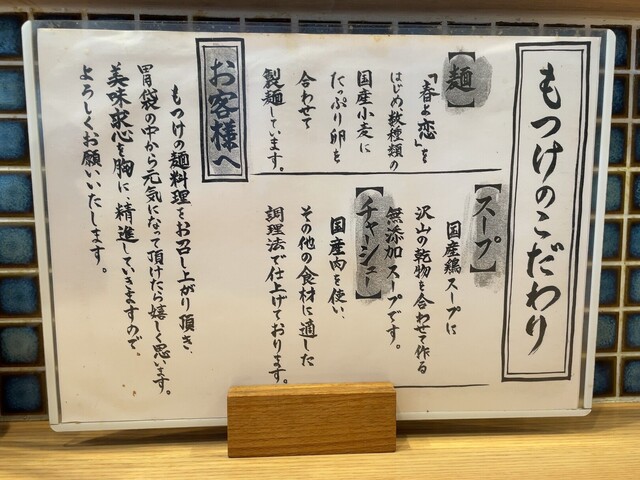 もつけのこだわり
【麺】
「春よ恋」を
はじめ数種類の
国産小麦に
たっぷり卵を
合わせて
製麺しています。
【スープ】
国産鶏スープに
沢山の乾物を合わせて作る
無添加スープです。
【チャーシュー】
国産肉を使い、
その他の食材に適した
調理法で仕上げております。
お客様へ
もつけの麺料理をお召し上がり頂き、
胃袋の中から元気になって頂けたら嬉しく思います。
美味求心を胸に、精進していきますので、
よろしくお願いいたします。